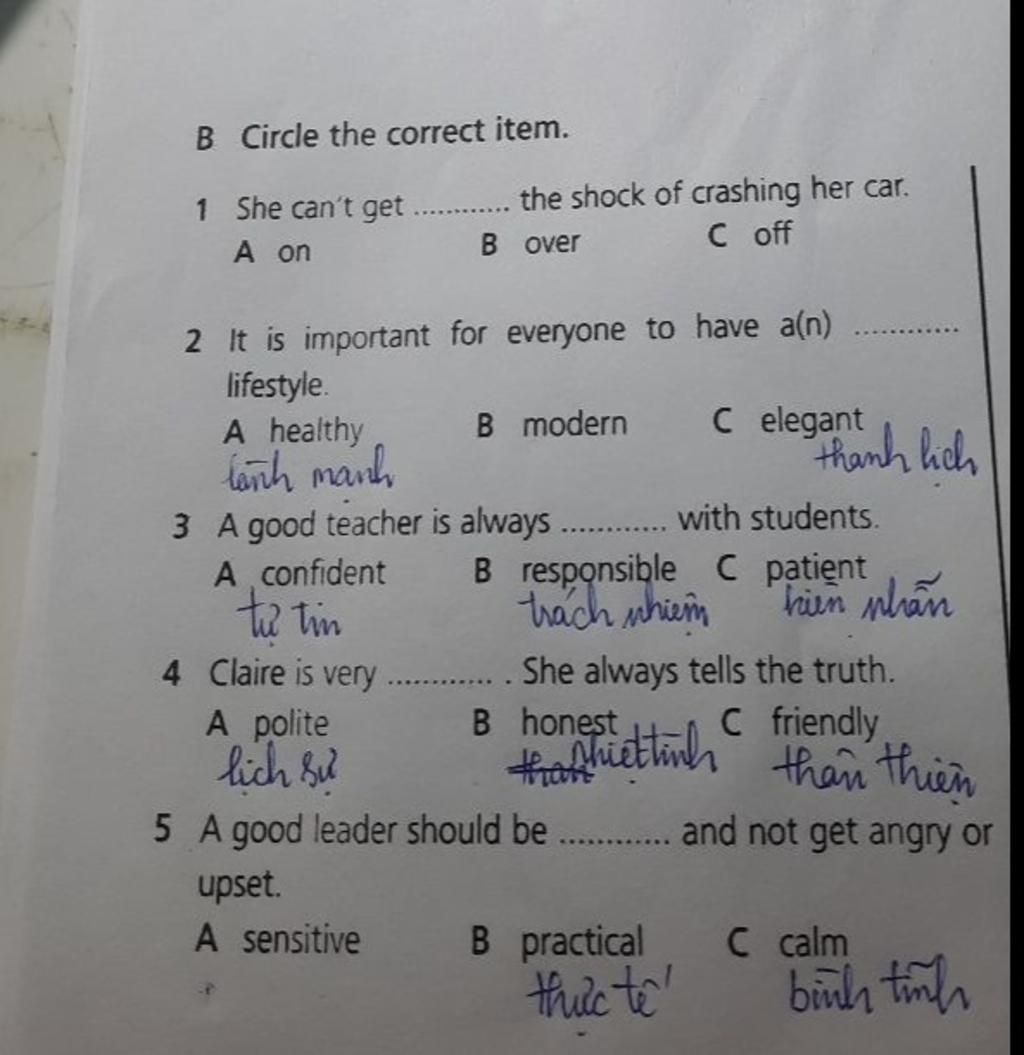 B Circle the correct item.
1 She can't get ............ the shock of crashing her car.
A on B over C off
2 It is important for everyone to have a(n) ............
lifestyle.
A healthy B modern C elegant
lành mạnh thanh lịch
3 A good teacher is always ............ with students.
A confident B responsible C patient
tự tin trách nhiệm kiên nhẫn
4 Claire is very ............ . She always tells the truth.
A polite B honest C friendly
lịch sự nhiệt tình thân thiện
5 A good leader should be ............ and not get angry or
upset.
A sensitive B practical C calm
thực tế bình tĩnh